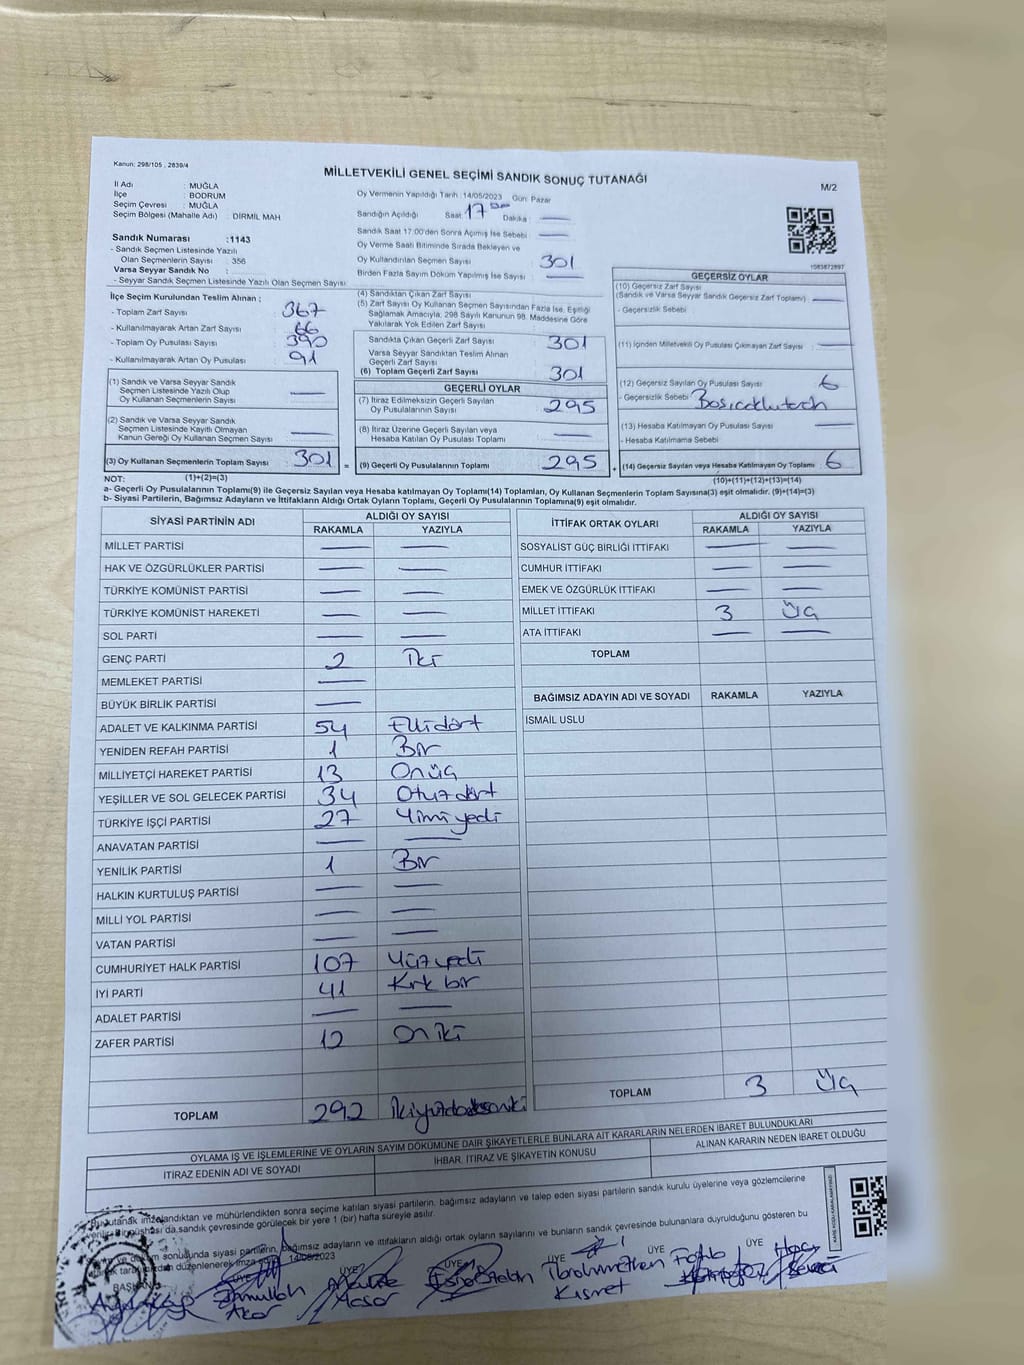 Kanun: 298/105 , 2839/4
MİLLETVEKİLİ GENEL SEÇİMİ SANDIK SONUÇ TUTANAĞI
M/2
İl Adı : MUĞLA
İlçe : BODRUM
Seçim Çevresi : MUĞLA
Seçim Bölgesi (Mahalle Adı) : DİRMİL MAH
Sandık Numarası :1143
- Sandık Seçmen Listesinde Yazılı
Olan Seçmenlerin Sayısı : 356
Varsa Seyyar Sandık No :
- Seyyar Sandık Seçmen Listesinde Yazılı Olan Seçmen Sayısı
Oy Vermenin Yapıldığı Tarih :14/05/2023 Gün: Pazar
Sandığın Açıldığı Saat 17 Dakika :
Sandık Saat 17:00'den Sonra Açılmış İse Sebebi :
Oy Verme Saati Bitiminde Sırada Bekleyen ve
Oy Kullandırılan Seçmen Sayısı 301
Birden Fazla Sayım Döküm Yapılmış İse Sayısı :
1583872897
İlçe Seçim Kurulundan Teslim Alınan ;
- Toplam Zarf Sayısı 367
- Kullanılmayarak Artan Zarf Sayısı 66
- Toplam Oy Pusulası Sayısı 390
- Kullanılmayarak Artan Oy Pusulası 91
(1) Sandık ve Varsa Seyyar Sandık
Seçmen Listesinde Yazılı Olup
Oy Kullanan Seçmenlerin Sayısı
(2) Sandık ve Varsa Seyyar Sandık
Seçmen Listesinde Kayıtlı Olmayan
Kanun Gereği Oy Kullanan Seçmen Sayısı
(3) Oy Kullanan Seçmenlerin Toplam Sayısı 301
(1)+(2)=(3)
(4) Sandıktan Çıkan Zarf Sayısı
(5) Zarf Sayısı Oy Kullanan Seçmen Sayısından Fazla İse, Eşitliği
Sağlamak Amacıyla, 298 Sayılı Kanunun 98. Maddesine Göre
Yakılarak Yok Edilen Zarf Sayısı
Sandıkta Çıkan Geçerli Zarf Sayısı 301
Varsa Seyyar Sandıktan Teslim Alınan
Geçerli Zarf Sayısı
(6) Toplam Geçerli Zarf Sayısı 301
GEÇERLİ OYLAR
(7) İtiraz Edilmeksizin Geçerli Sayılan
Oy Pusulalarının Sayısı 295
(8) İtiraz Üzerine Geçerli Sayılan veya
Hesaba Katılan Oy Pusulası Toplamı
= (9) Geçerli Oy Pusulalarının Toplamı 295
GEÇERSİZ OYLAR
(10) Geçersiz Zarf Sayısı
(Sandık ve Varsa Seyyar Sandık Geçersiz Zarf Toplamı)
- Geçersizlik Sebebi
(11) İçinden Milletvekili Oy Pusulası Çıkmayan Zarf Sayısı
(12) Geçersiz Sayılan Oy Pusulası Sayısı 6
- Geçersizlik Sebebi
(13) Hesaba Katılmayan Oy Pusulası Sayısı
- Hesaba Katılmama Sebebi
+ (14) Geçersiz Sayılan veya Hesaba Katılmayan Oy Toplamı : 6
(10)+(11)+(12)+(13)=(14)
NOT:
a- Geçerli Oy Pusulalarının Toplamı(9) ile Geçersiz Sayılan veya Hesaba katılmayan Oy Toplamı(14) Toplamları, Oy Kullanan Seçmenlerin Toplam Sayısına(3) eşit olmalıdır. (9)+(14)=(3)
b- Siyasi Partilerin, Bağımsız Adayların ve İttifakların Aldığı Ortak Oyların Toplamı, Geçerli Oy Pusulalarının Toplamına(9) eşit olmalıdır.
SİYASİ PARTİNİN ADI ALDIĞI OY SAYISI
RAKAMLA YAZIYLA
MİLLET PARTİSİ
HAK VE ÖZGÜRLÜKLER PARTİSİ
TÜRKİYE KOMÜNİST PARTİSİ
TÜRKİYE KOMÜNİST HAREKETİ
SOL PARTİ
GENÇ PARTİ 2 İki
MEMLEKET PARTİSİ
BÜYÜK BİRLİK PARTİSİ
ADALET VE KALKINMA PARTİSİ 54 Ellidört
YENİDEN REFAH PARTİSİ 1 Bir
MİLLİYETÇİ HAREKET PARTİSİ 13 Onüç
YEŞİLLER VE SOL GELECEK PARTİSİ 34 Otuzdört
TÜRKİYE İŞÇİ PARTİSİ 27 Yirmiyedi
ANAVATAN PARTİSİ
YENİLİK PARTİSİ 1 Bir
HALKIN KURTULUŞ PARTİSİ
MİLLİ YOL PARTİSİ
VATAN PARTİSİ
CUMHURİYET HALK PARTİSİ 107 Yüzyedi
İYİ PARTİ 41 Kırk bir
ADALET PARTİSİ
ZAFER PARTİSİ 12 On iki
TOPLAM 292 İkiyüzdoksaniki
İTTİFAK ORTAK OYLARI ALDIĞI OY SAYISI
RAKAMLA YAZIYLA
SOSYALİST GÜÇ BİRLİĞİ İTTİFAKI
CUMHUR İTTİFAKI
EMEK VE ÖZGÜRLÜK İTTİFAKI
MİLLET İTTİFAKI 3 Üç
ATA İTTİFAKI
TOPLAM
BAĞIMSIZ ADAYIN ADI VE SOYADI RAKAMLA YAZIYLA
İSMAİL USLU
TOPLAM 3 Üç
OYLAMA İŞ VE İŞLEMLERİNE VE OYLARIN SAYIM DÖKÜMÜNE DAİR ŞİKAYETLERLE BUNLARA AİT KARARLARIN NELERDEN İBARET BULUNDUKLARI
İTİRAZ EDENİN ADI VE SOYADI
İHBAR, İTİRAZ VE ŞİKAYETİN KONUSU
ALINAN KARARIN NEDEN İBARET OLDUĞU
Bu tutanak imzalandıktan ve mühürlendikten sonra seçime katılan siyasi partilerin, bağımsız adayların ve talep eden siyasi partilerin sandık kurulu üyelerine veya gözlemcilerine
da,sandık çevresinde görülecek bir yere 1 (bir) hafta süreyle asılır.
sonulunda siyasi partilerin, bağımsız adayların ve ittifakların aldığı ortak oyların sayılarını ve bunların sandık çevresinde bulunanlara duyrulduğunu gösteren bu
düzenlenerek imza 14/05/2023
BAŞKAN ÜYE ÜYE ÜYE ÜYE ÜYE ÜYE
Kısmet